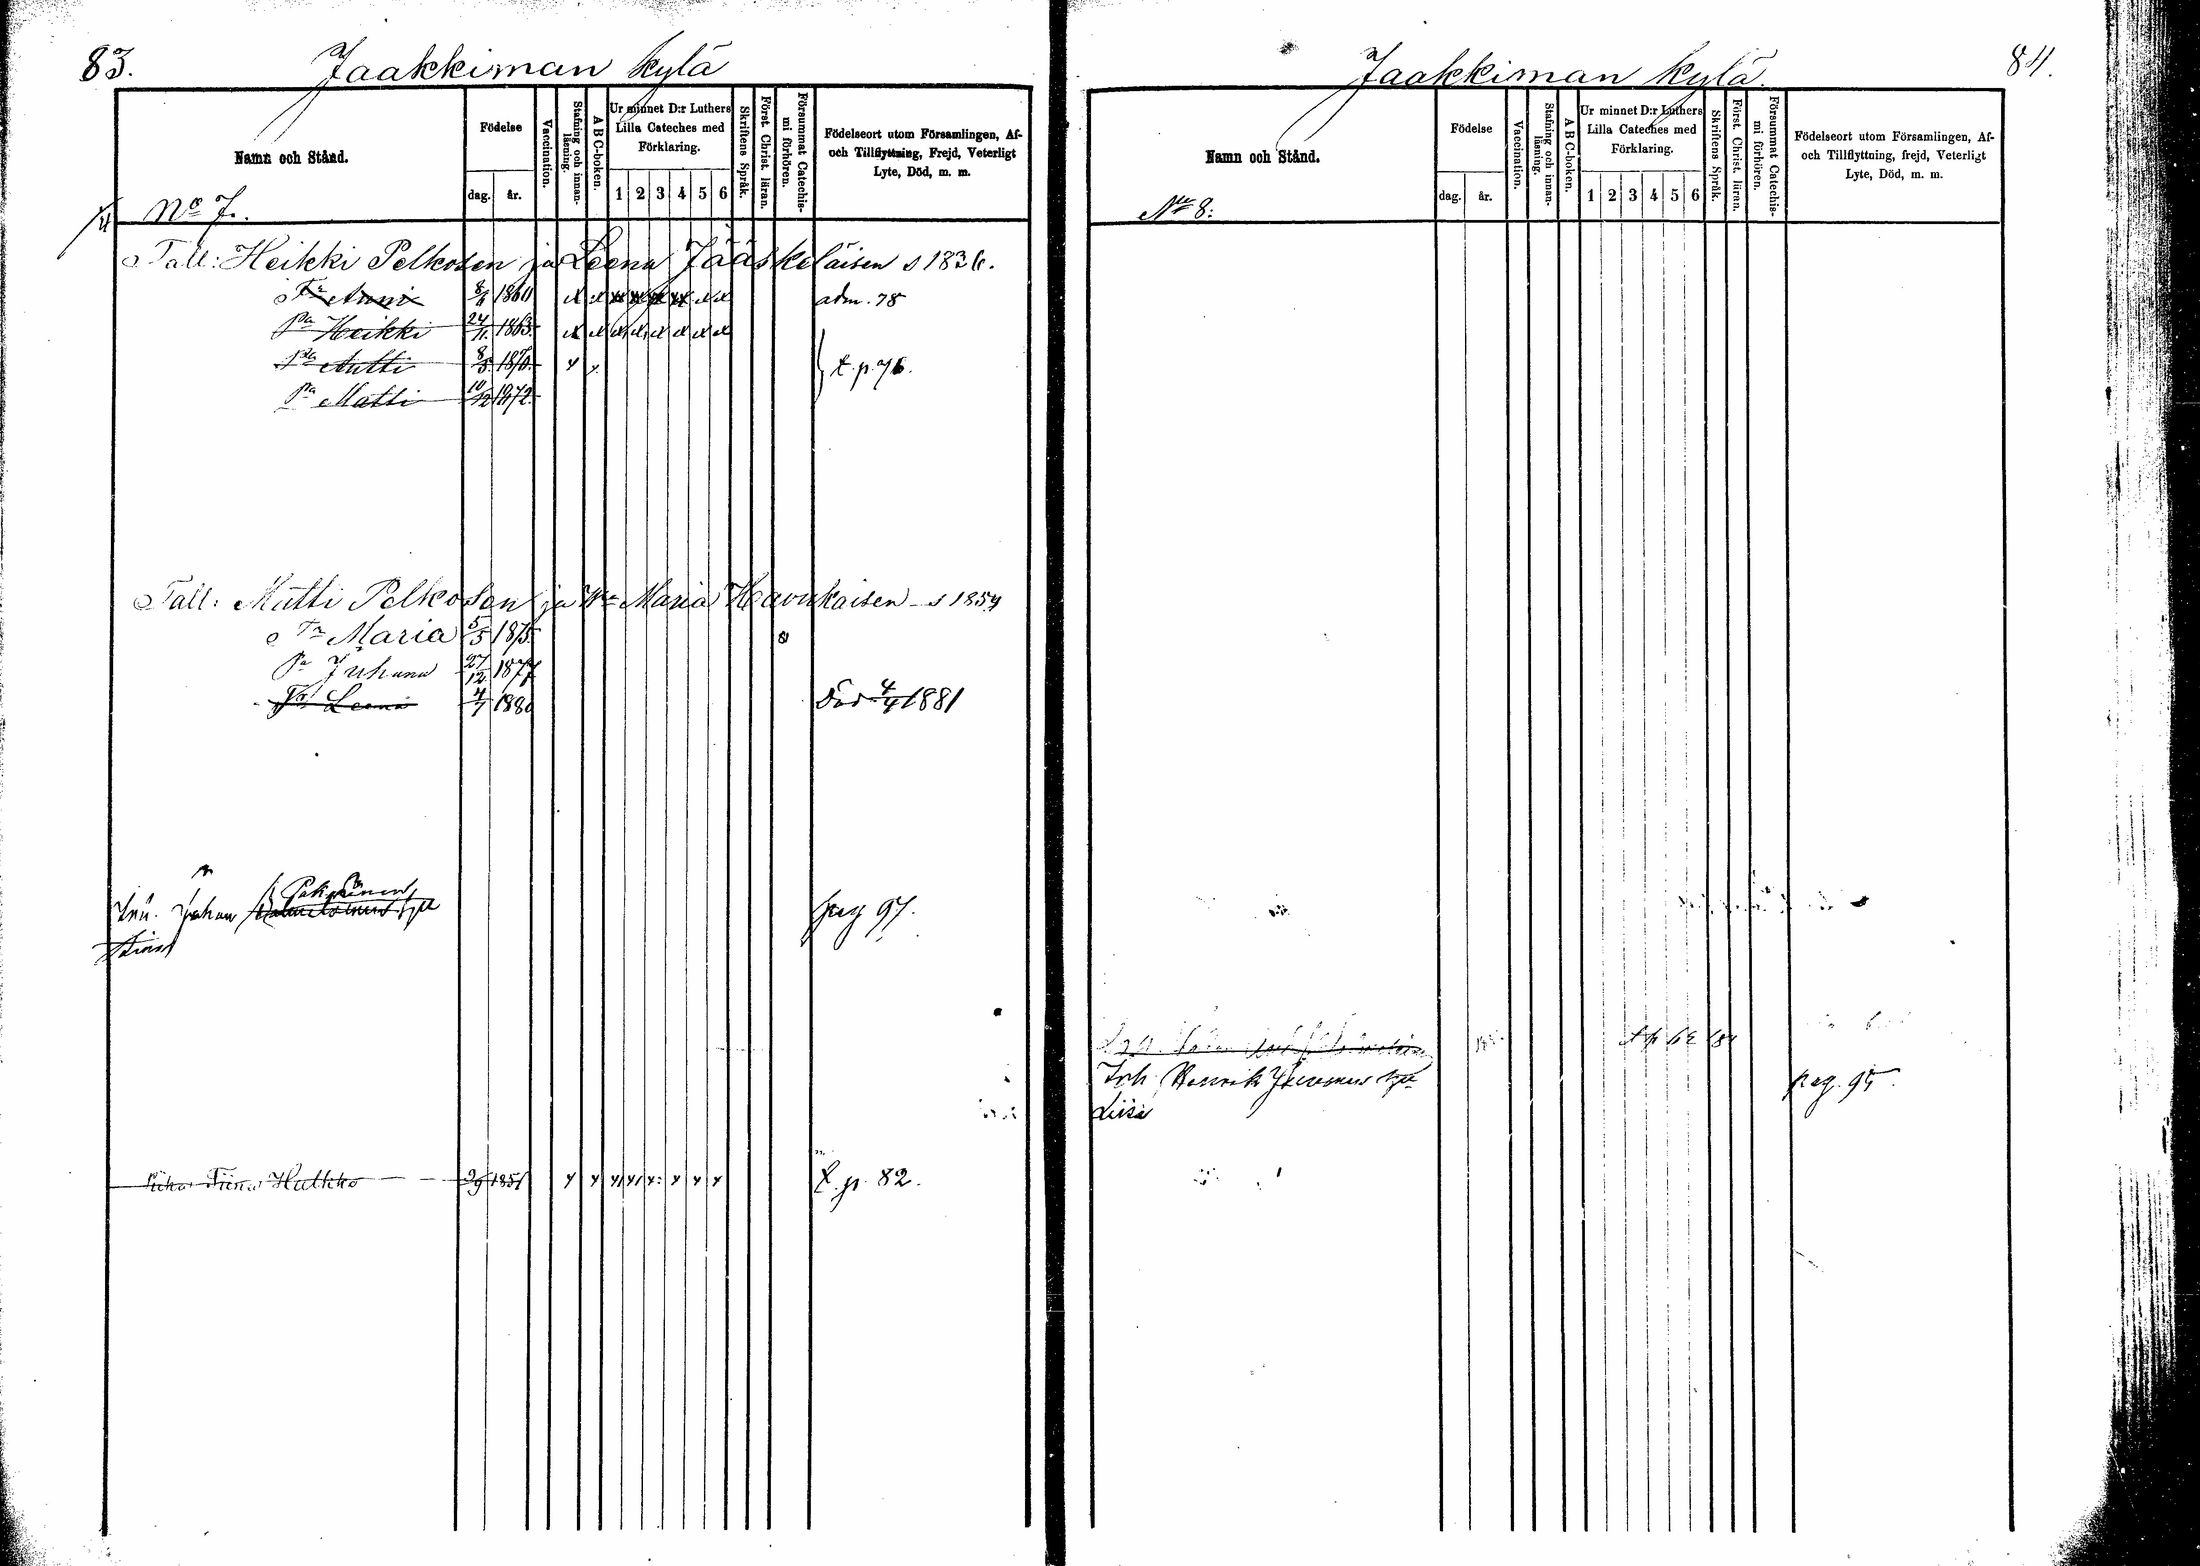 83.
Jaakkiman kylä
Namn och Stånd.
Födelse
dag.
år.
Vaccination.
Stafning och innan-
läsning.
A B C-boken.
Ur minnet D:r Luthers
Lilla Cateches med
Förklaring.
1 2 3 4 5 6
Skriftens Språk.
Först. Christ. läran.
Försummat Catechis-
mi förhören.
Födelseort utom Församlingen, Af-
och Tillflyttning, Frejd, Veterligt
Lyte, Död, m. m.
No 7.
Tall: Heikki Pelkosen ja Leena Jääskeläisen s 1836.
Tr Anni 1860 adm. 78
Pa Heikki 24/11 1863
Pa Antti 8/5 1870 t. p. 76.
Pa Matti 10/12 1872
Tall: Matti Pelkosen ja Wa Maria Havukaisen s 1854
Tr Maria 5/5 1875
Pa Juhana 27/12 1877
Tr Leena 4/7 1880 Död 4/4 1881
Johan
pag 97.
Tiina Hulkko 1851 t. p. 82.
Jaakkiman kylä.
84.
Namn och Stånd.
Födelse
dag.
år.
Vaccination.
Stafning och innan-
läsning.
A B C-boken.
Ur minnet D:r Luthers
Lilla Cateches med
Förklaring.
1 2 3 4 5 6
Skriftens Språk.
Först. Christ. läran.
Försummat Catechis-
mi förhören.
Födelseort utom Församlingen, Af-
och Tillflyttning, frejd, Veterligt
Lyte, Död, m. m.
No 8:
Henrik
Liisa
pag. 95